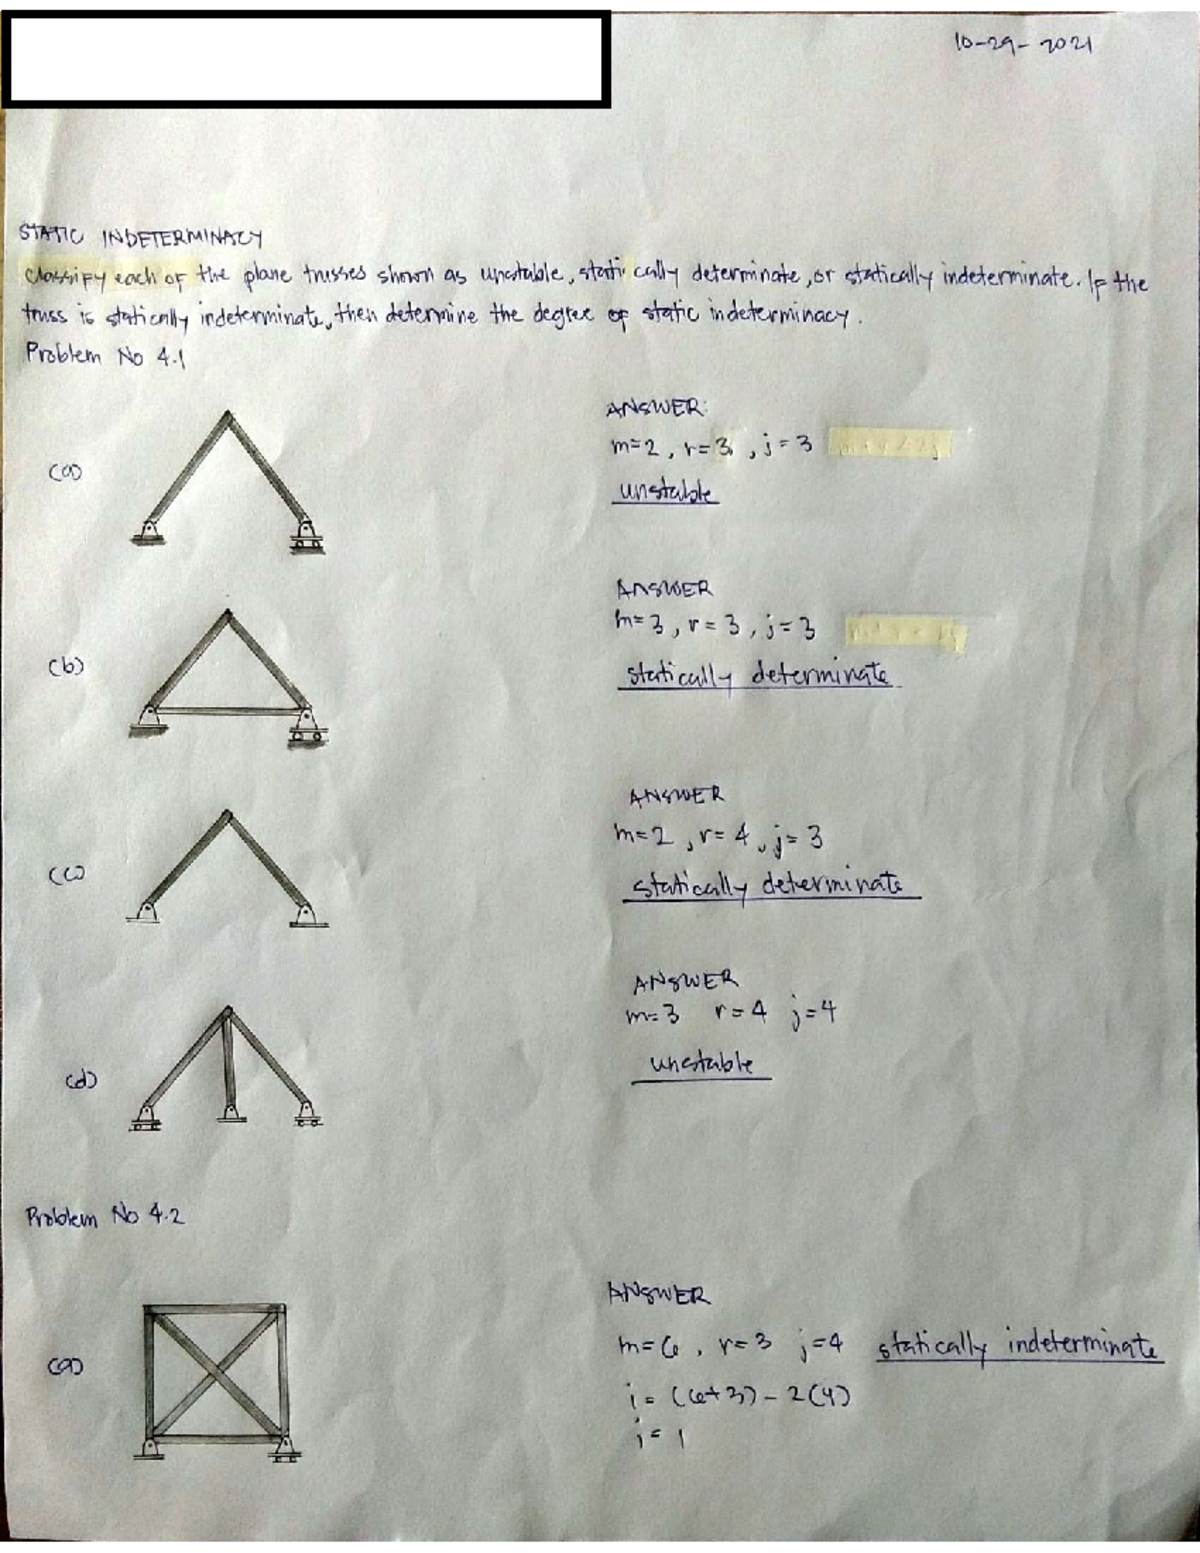 10-29-2021
STATIC INDETERMINACY
Classify each of the plane trusses shown as unstable, statically determinate, or statically indeterminate. If the
truss is statically indeterminate, then determine the degree of static indeterminacy.
Problem No 4.1
ANSWER:
m=2, r=3, j=3
(a)
unstable
ANSWER
m=3, r=3, j=3
(b)
statically determinate
ANSWER
m=2, r=4, j=3
(c)
statically determinate
ANSWER
m=3 r=4 j=4
unstable
(d)
Problem No 4.2
ANSWER
m=6, r=3 j=4 statically indeterminate
(a)
i = (6+3) - 2(4)
i = 1